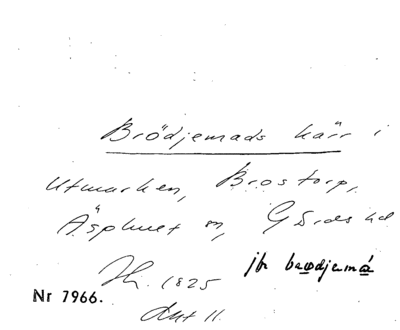 Brödjemads kärr i
Utmarken, Brostorp,
Äsphult sn, Gärds hd
Jfr. 1825
jfr brødjemå
Nr 7966.
Akt 11.